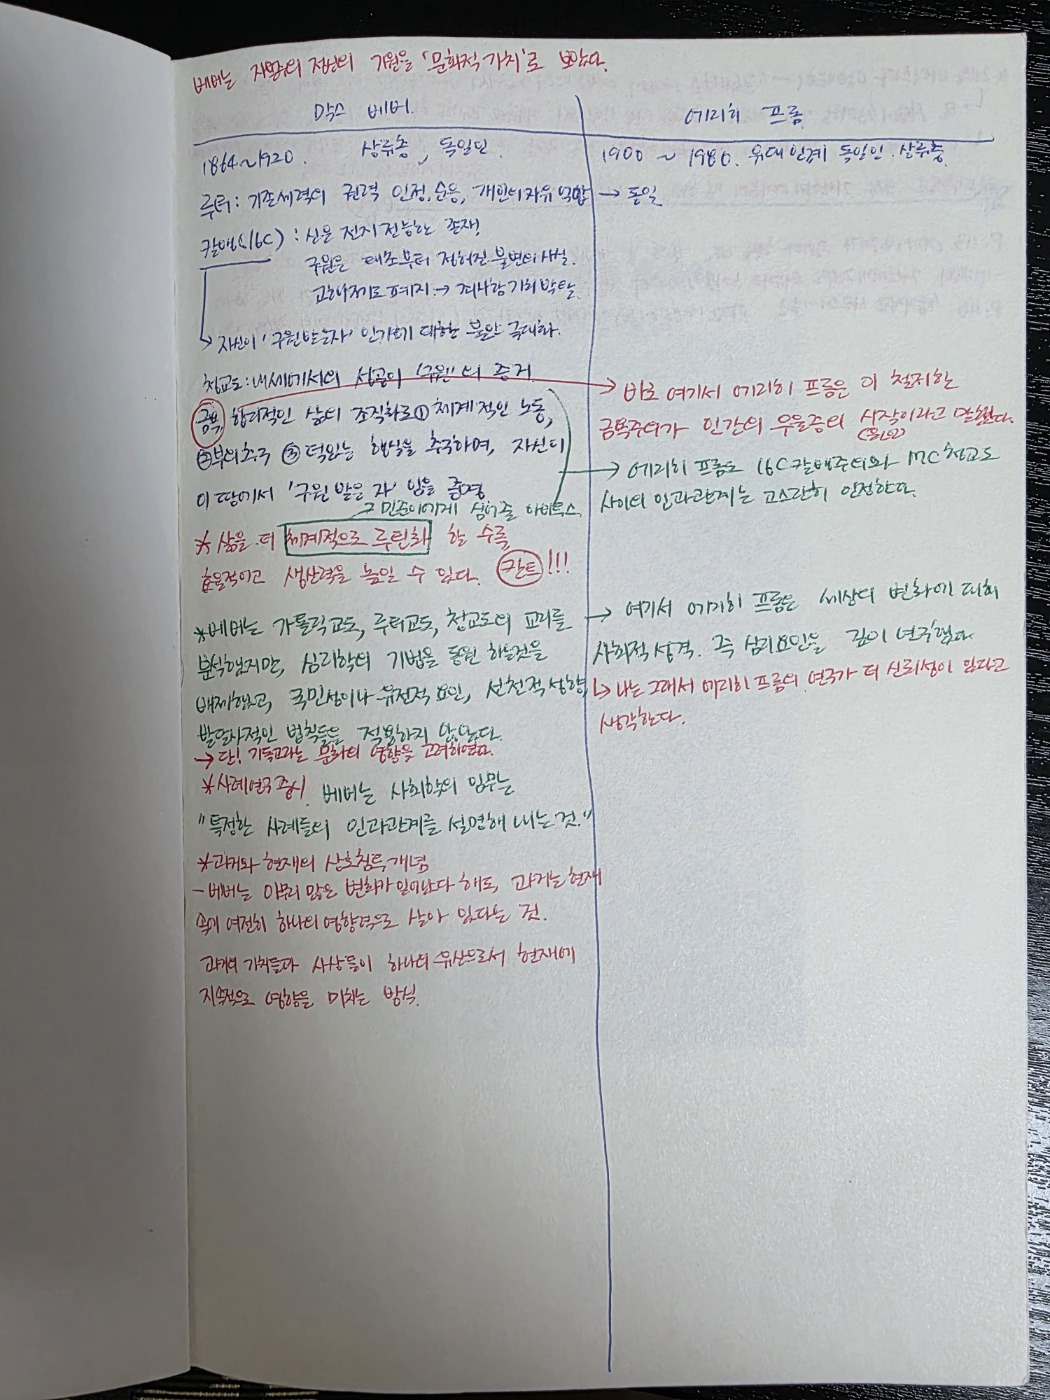 베버는 자본주의 정신의 기원을 '문화적 가치'로 보았다.
막스 베버
1864~1920. 상류층, 독일인
루터: 기존세력의 권력 인정, 순응, 개인의 자유 억압
칼뱅(16C): 신은 전지전능한 존재!
구원은 태초부터 정해진 불변의 사실.
고해성사제도 폐지 → 죄사함 기회 박탈
↳ 자신이 '구원받은자' 인가에 대한 불안 극대화.
청교도: 내세에서의 성공이 '구원'의 증거
금욕, 합리적인 삶의 조직화로 ① 체계적인 노동,
② 부의 추구 ③ 덕있는 행실을 추구하며, 자신이
이 땅에서 '구원 받은 자' 임을 증명
→ 민중에게 심어줄 아비투스
* 삶을 더 체계적으로 루틴화 할 수록
효율적이고 생산력을 높일 수 있다. 칸트!!!
* 베버는 가톨릭교도, 루터교도, 청교도의 교리를
분석했지만, 심리학의 기법을 동원 하는것을
배제했고, 국민성이나 유전적 요인, 선천적 성향
발달사적인 법칙들을 적용하지 않았다.
→ 단! 기독교라는 문화의 영향을 고려하였다.
* 사례연구 중시 베버는 사회학의 임무는
"특정한 사례들의 인과관계를 설명해 내는 것."
* 과거와 현재의 상호침투 개념
- 베버는 아무리 많은 변화가 일어난다 해도, 과거는 현재
속에 여전히 하나의 영향력으로 살아 있다는 것.
과거의 가치들과 사상들이 하나의 유산으로서 현재에
지속적으로 영향을 미치는 방식.
에리히 프롬
1900 ~ 1980. 유대인계 독일인. 상류층.
→ 동일
→ 바로 여기서 에리히 프롬은 이 철저한
금욕주의가 인간의 우울증의 시작이라고 말했다.
→ 에리히 프롬도 16C 칼뱅주의와 17C 청교도
사이의 인과관계는 고스란히 인정한다.
→ 여기서 에리히 프롬은 세상의 변화에 의해
사회적 성격. 즉 심리요인을 깊이 연구했다
↳ 나는 그래서 에리히 프롬의 연구가 더 신뢰성이 있다고
생각한다.